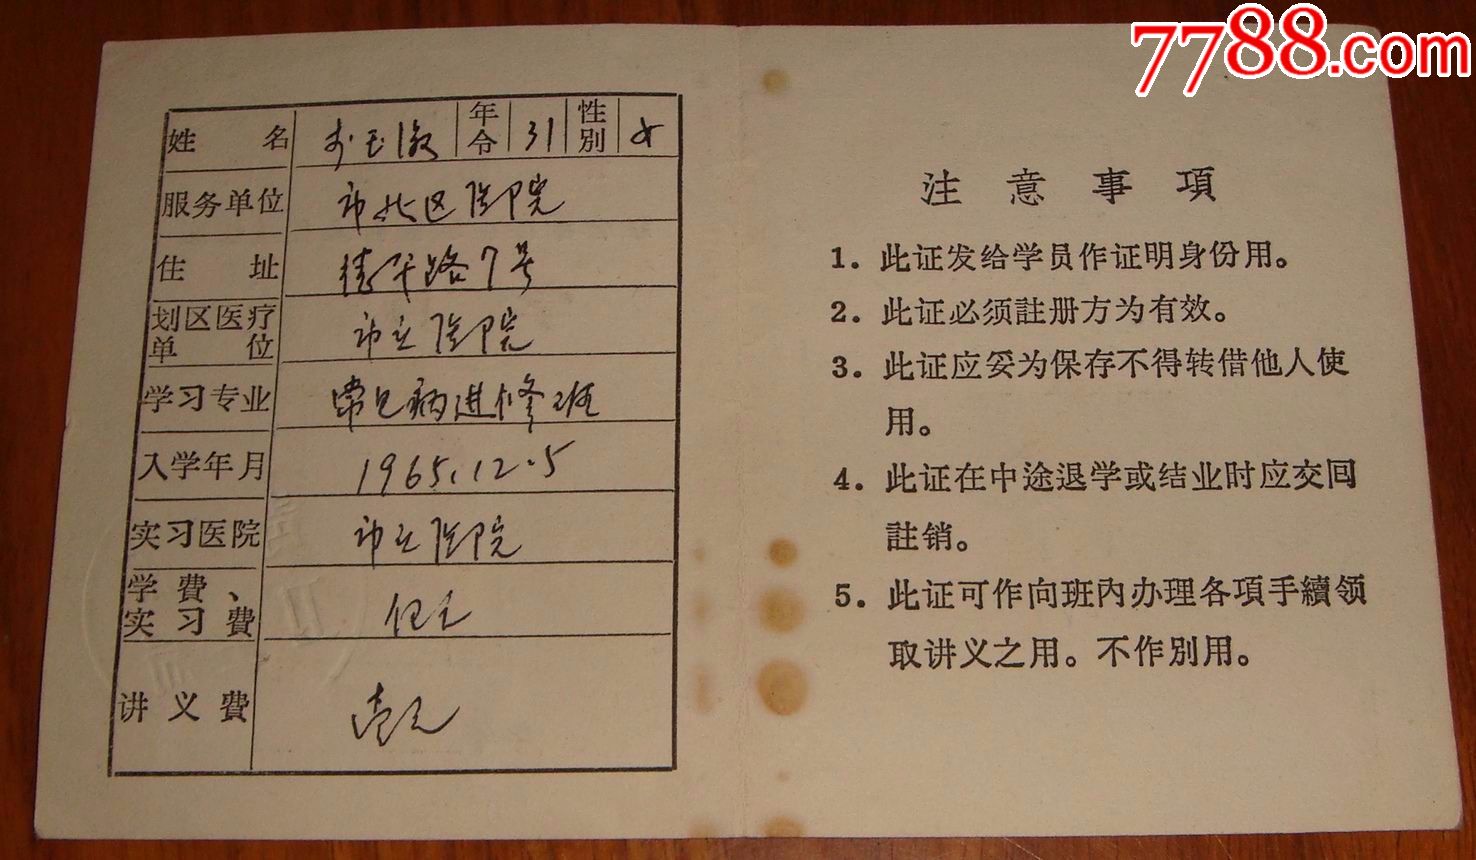 7788.com
姓名 玉 年令 31 性别 女
服务单位 市北区医院
住址 平路7号
划区医疗
单位 市立医院
学习专业 常见病进修班
入学年月 1965.12.5
实习医院 市立医院
学費、
实习費 元
讲义費 壹元
注意事項
1. 此证发给学员作证明身份用。
2. 此证必须註册方为有效。
3. 此证应妥为保存不得转借他人使
用。
4. 此证在中途退学或结业时应交回
註销。
5. 此证可作向班内办理各項手續领
取讲义之用。不作別用。